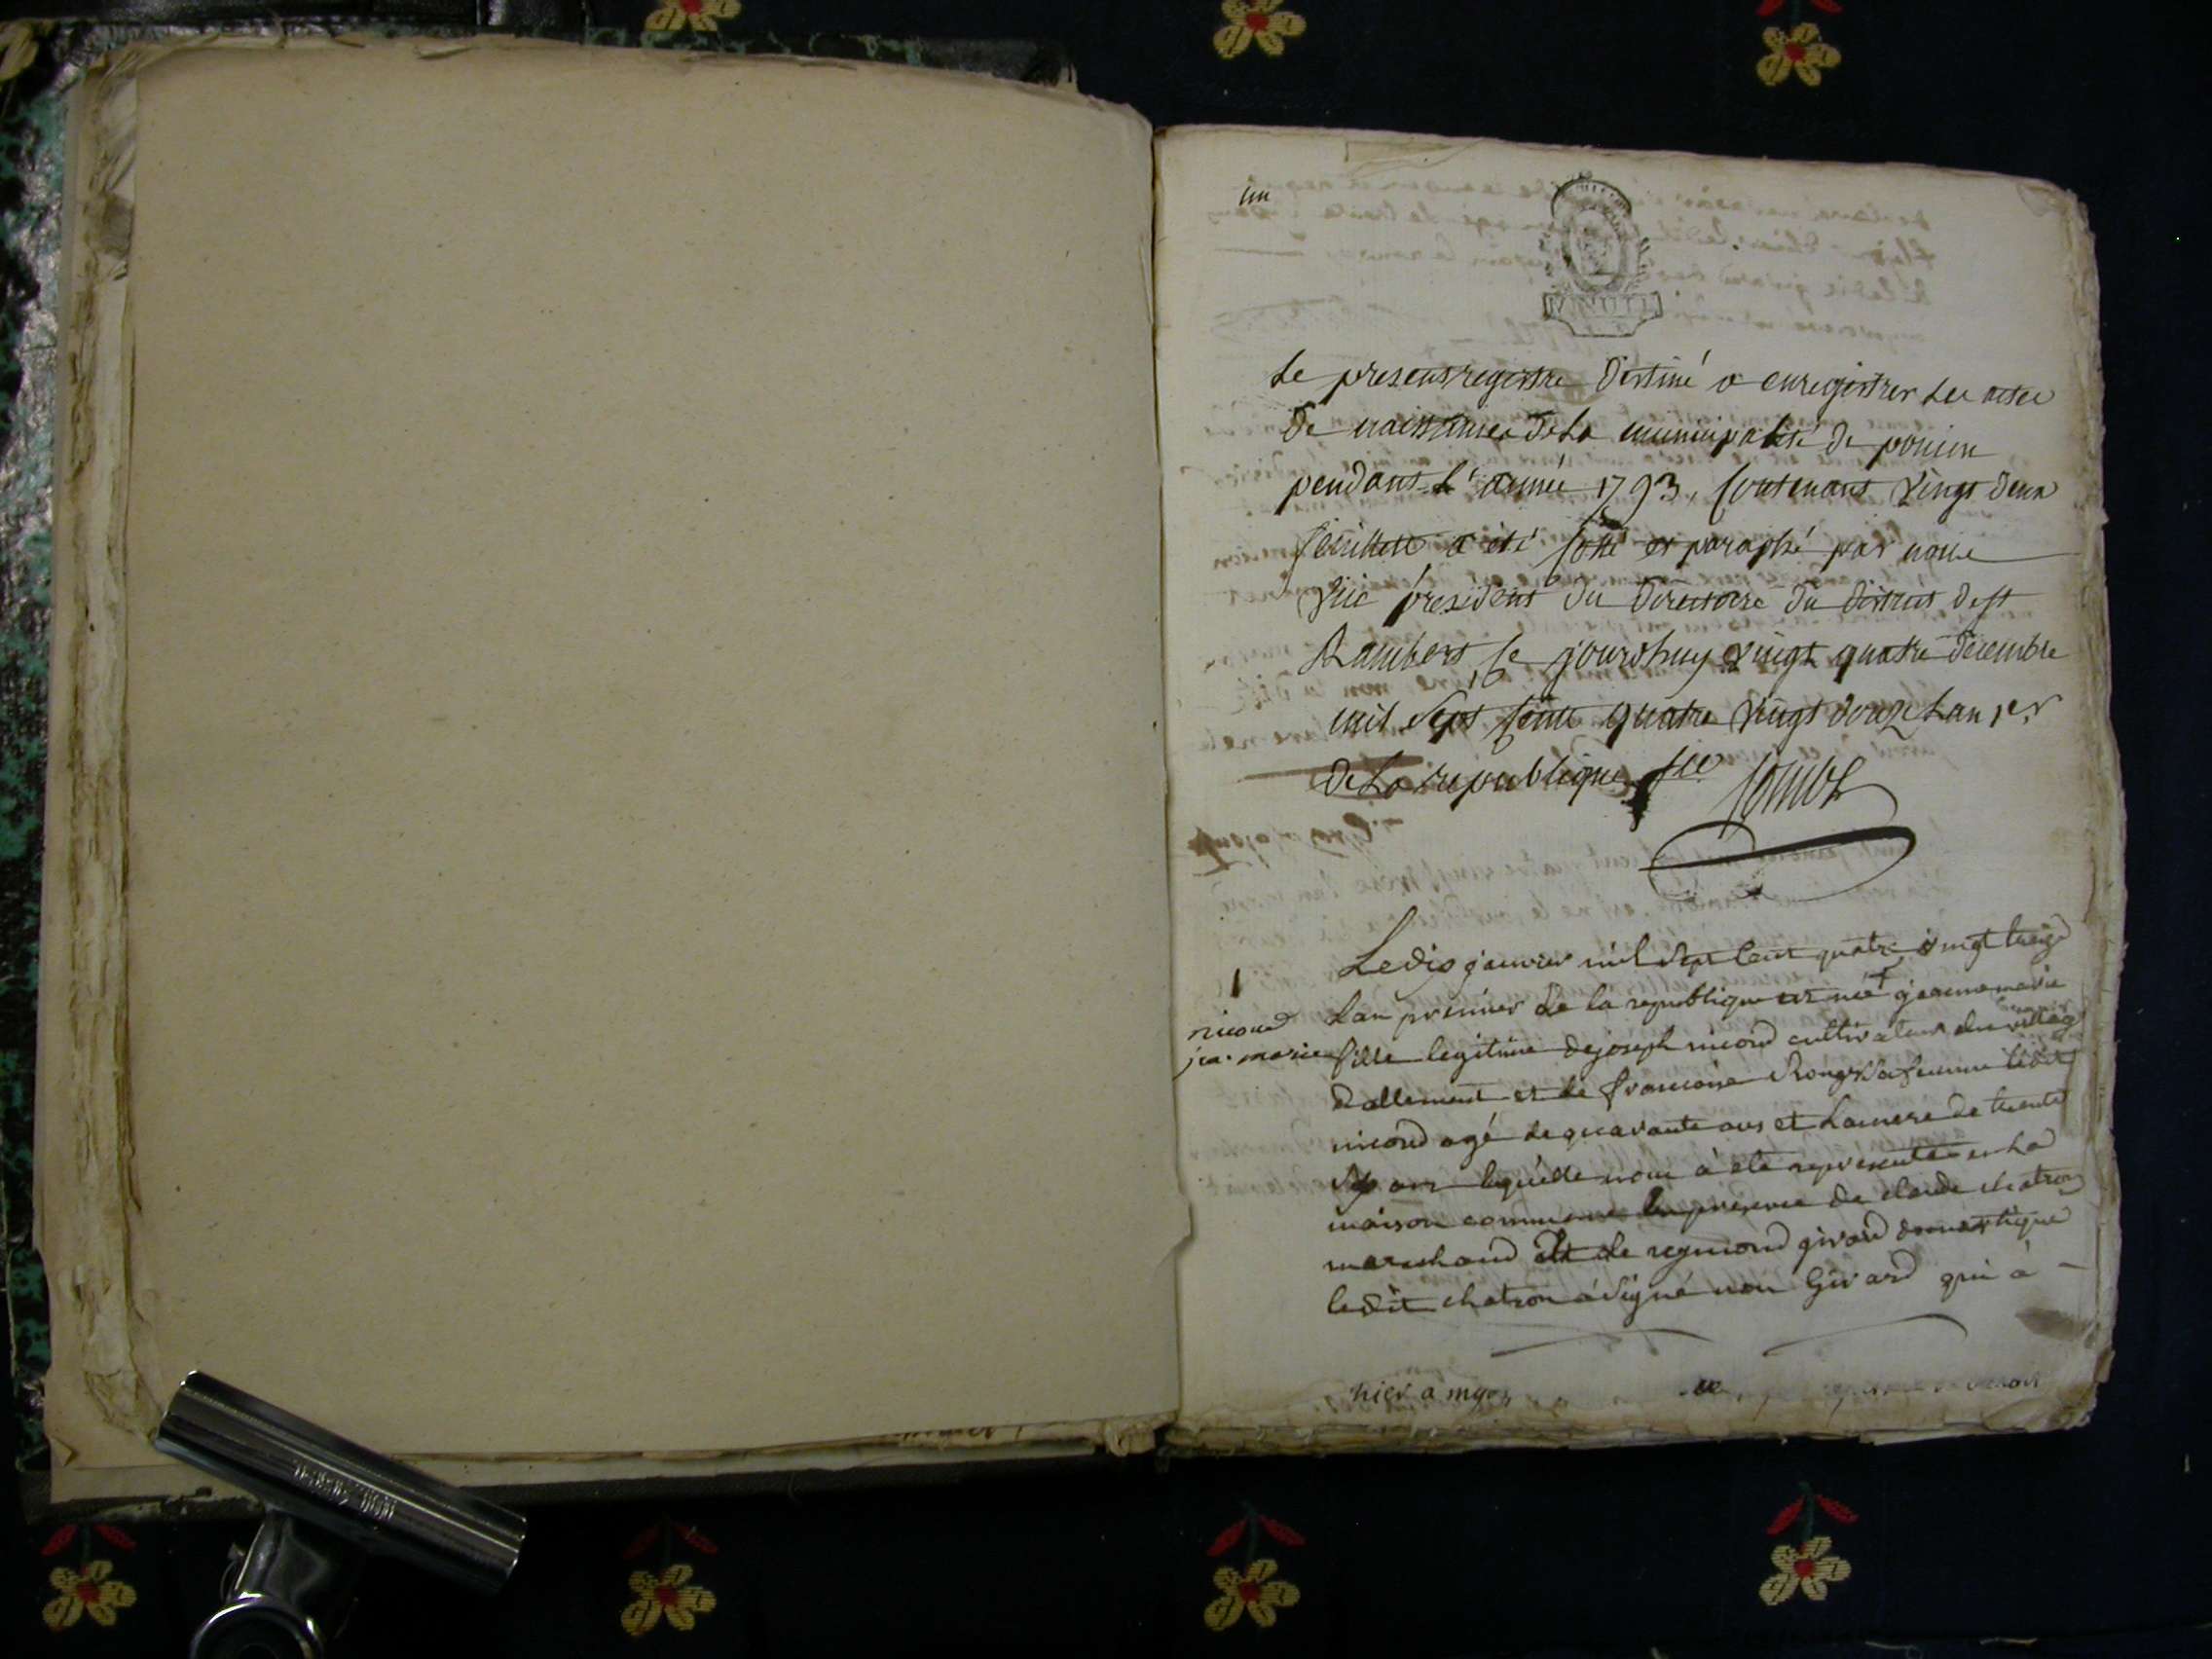 un
MINUTE
Le present registre destiné a enregistrer les actes
de naissances de la municipalité de poncin
pendant l'année 1793, Contenant vingt deux
feuillets a été Cotté et paraphé par nous
Vice président du directoire du district de st
Rambert, Ce jourdhuy vingt quatre decembre
mil Sept Cents quatre vingt douze Lan 1er
de La republique fse
1
Le dix janvier mil Sept Cent quatre vingt treize
Lan premier de la republique est neé jeanne marie
nicoud
jea. marie
fille legitime de joseph nicoud cultivateur du village
dallement et de francoise sa femme ledit
nicoud agé de quarante ans et La mere de trente
Sept ans laquelle nous à eté representée en La
maison commune En presence de claude chatron
marchand et de reymond girard domestique
ledit chatron à Signé non Girard qui à
hier a